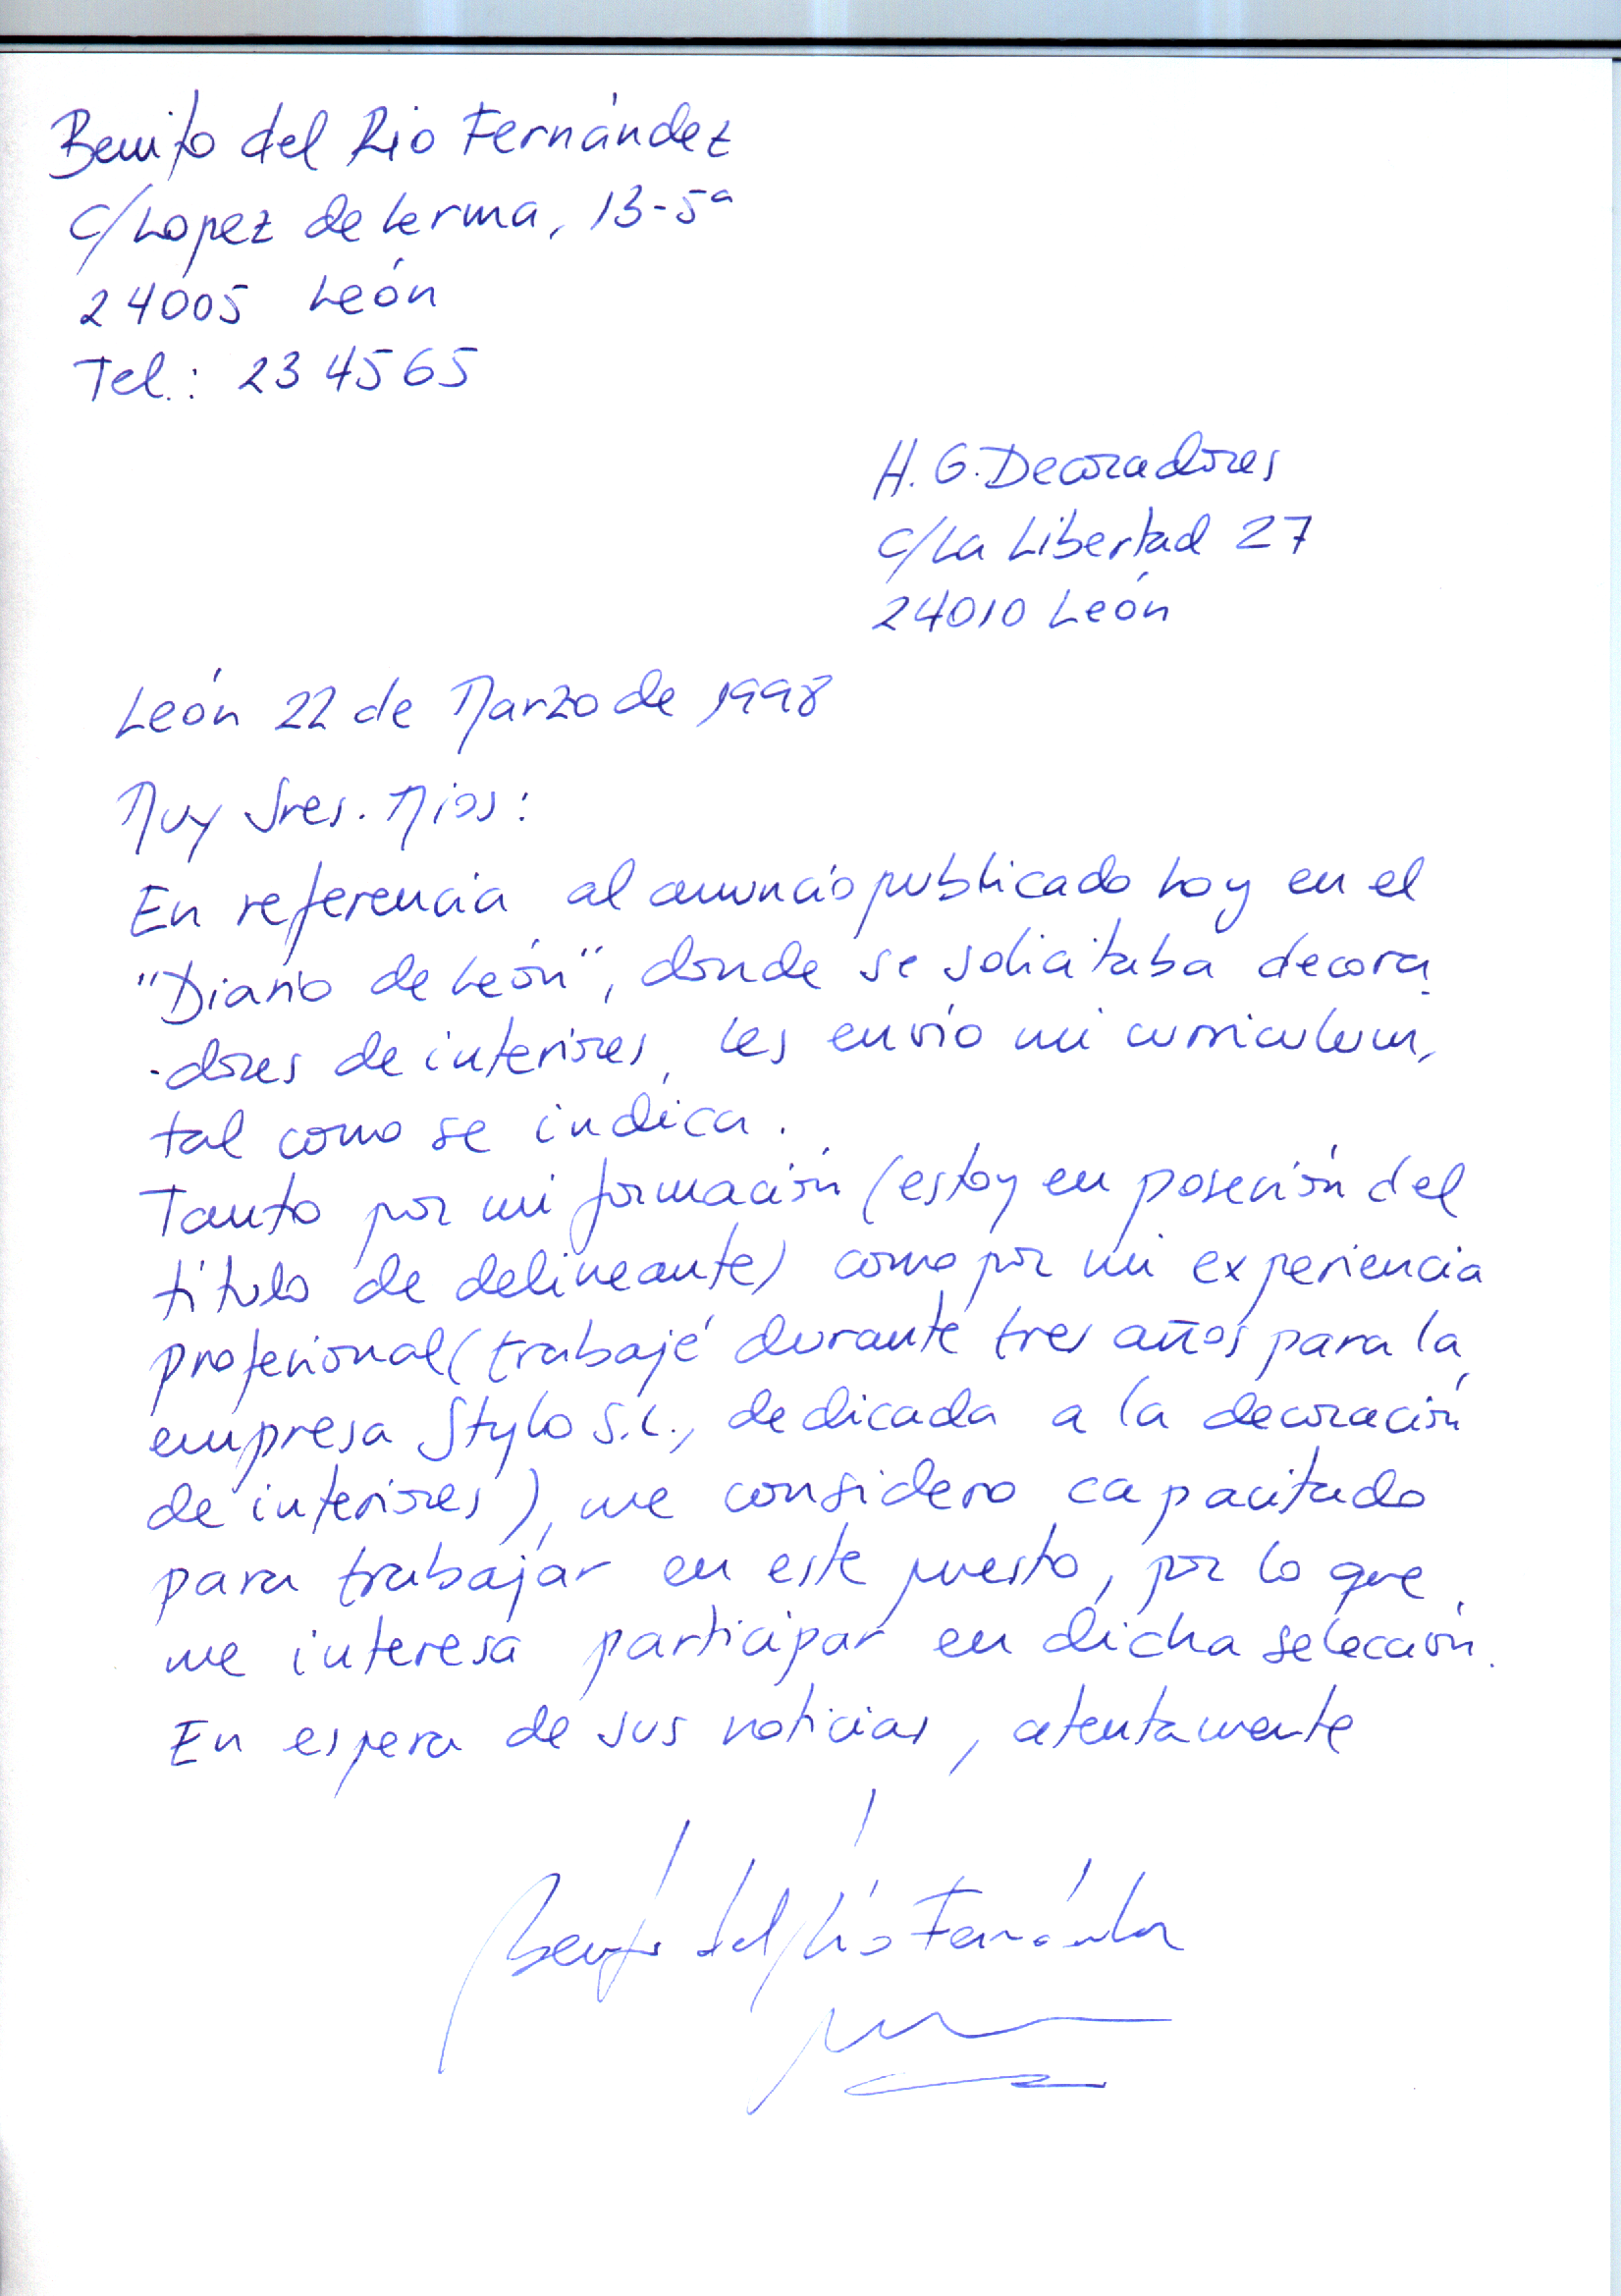 Benito del Rio Fernández
C/Lopez de Lerma, 13-5ª
24005 León
Tel.: 23 45 65
H. G. Decoradores
C/La Libertad 27
24010 León
León 22 de Marzo de 1998
Muy Sres. Mios:
En referencia al anuncio publicado hoy en el
"Diario de León", donde se solicitaba decora
-dores de interiores, les envío mi curriculum,
tal como se indica.
Tanto por mi formación (estoy en posesión del
título de delineante) como por mi experiencia
profesional (trabajé durante tres años para la
empresa Stylo S.L., dedicada a la decoración
de interiores), me considero capacitado
para trabajar en este puesto, por lo que
me interesa participar en dicha selección.
En espera de sus noticias, atentamente
Benito del Río Fernández